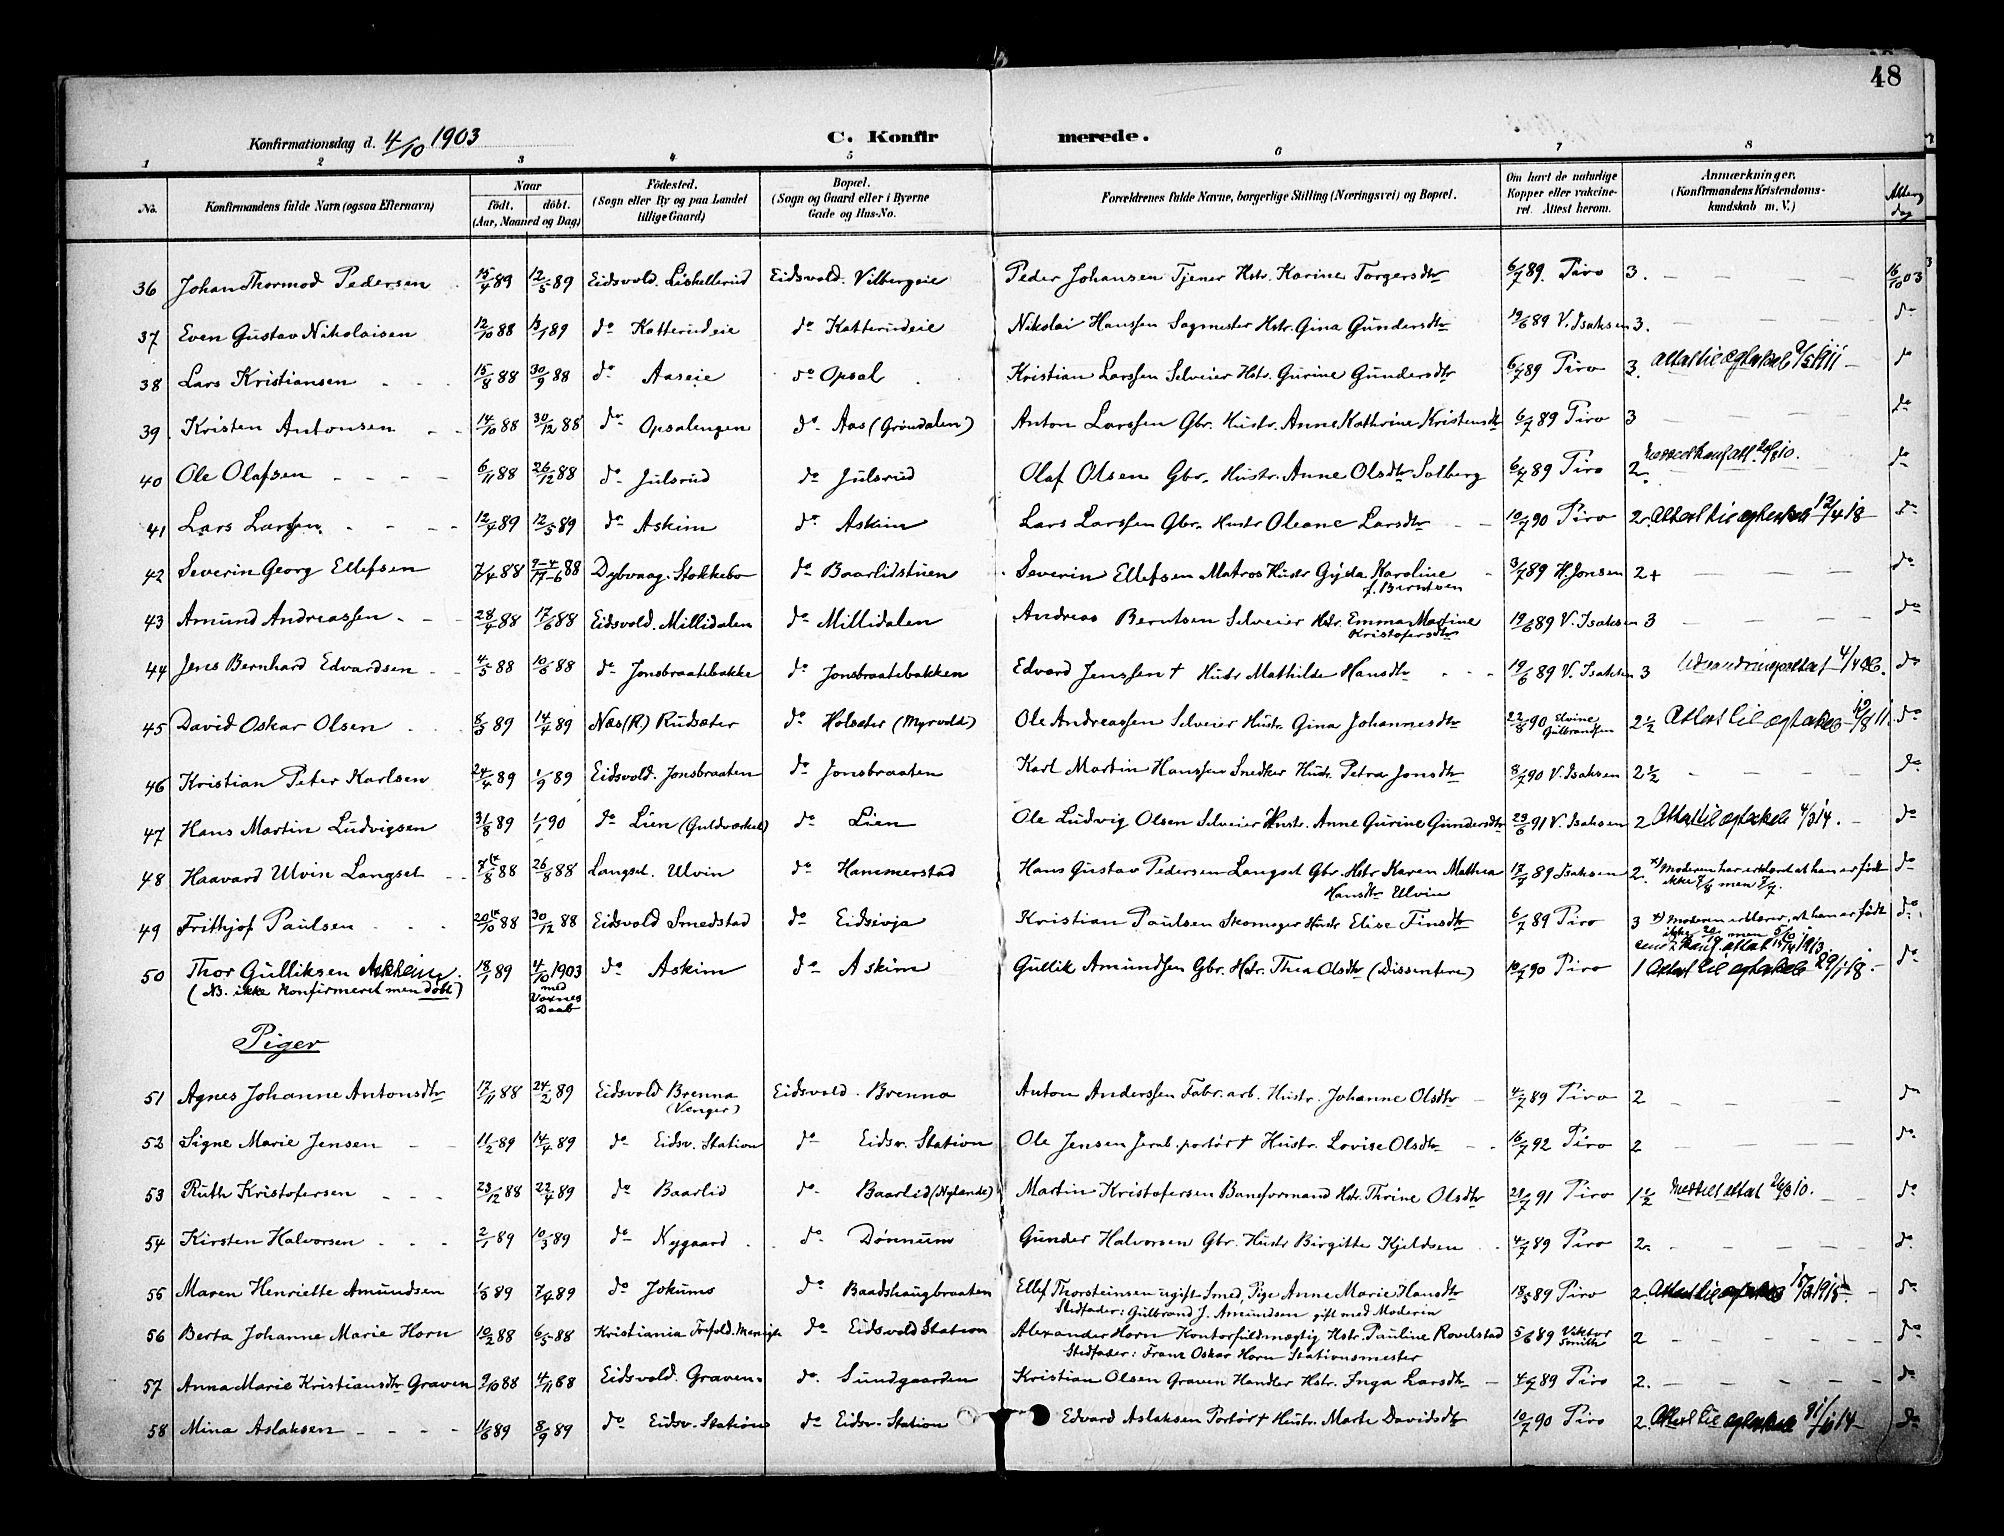 48
Konfirmationsdag d. 4/10 1903 C. Konfirmerede.
1 2 3 4 5 6 7 8
No. Konfirmandens fulde Navn (ogsaa Efternavn) Naar født. døbt. (Aar, Maaned og Dag) Fødested. (Sogn eller By og paa Landet tillige Gaard) Bopæl. (Sogn og Gaard eller i Byerne Gade og Hus-No. Forældrenes fulde Navne, borgerlige Stilling (Næringsvei) og Bopæl. Om havt de naturlige Kopper eller vakcineret. Attest herom. Anmærkninger. (Konfirmandens Kristendomskundskab m. V.) Alterg dag
36 Johan Thormod Pedersen 15/4 89 12/5 89 Eidsvold. Liskellerud Eidsvold. Vilbergeie Peder Johansen Tjener Hstr. Karine Torgersdtr 6/7 89. Piro 3. 16/10 03
37 Even Gustav Nikolaisen 12/10 88 13/1 89 do Katterudeie do Katterudeie Nikolai Hanssen Sagmester Hstr. Gina Gundersdtr 19/6 89 V. Isaksen 3. do
38 Lars Kristiansen 15/8 88 30/9 88 do Aaseie do Opsal Kristian Larssen Selveier Hstr. Gurine Gundersdtr 6/7 89 Piro 3. Attest til ægteskab 9/5 1911 do
39 Kristen Antonsen 14/10 88 30/12 88 do Opsalengen do Aas (Grøndalen) Anton Larssen Gbr. Hustr. Anne Kathrine Kristensdtr 6/7 89 Piro 3 do
40 Ole Olafsen 6/11 88 26/12 88 do Julsrud do Julsrud Olaf Olsen Gbr. Hustr. Anne Olsdtr Solberg 6/7 89 Piro 2. do
41 Lars Larssen 12/4 89 12/5 89 do Askim do Askim Lars Larssen Gbr. Hustr Oleane Larsdtr 10/7 90 Piro 2. Attest til ægteskab 12/4 18 do
42 Severin Georg Ellefsen 7/4 88 88 Dybvaag. Stokkebo do Baarlidstuen Severin Ellefsen Matros Hustr Gyda Karoline f. Berntsen 3/7 89 H. Jonsen 2+ do
43 Amund Andreassen 28/4 88 17/6 88 Eidsvold. Millidalen do Millidalen Andreas Berntsen Selveier Hstr. Emma Martine Kristofersdtr 19/6 89 V. Isaksen 3 do
44 Jens Bernhard Edvardsen 4/5 88 10/6 88 do Jonsbraatebakke do Jonsbraatebakken Edvard Jenssen † Hustr Mathilde Hansdtr 19/6 89 V. Isaksen 3 Udvandringsattest 4/4 06. do
45 David Oskar Olsen 8/3 89 14/4 89 Næs (R.) Rudsæter do Holsæter (Myrvold) Ole Andreassen Selveier Hustr. Gina Johannesdtr 22/8 90 Elvine Gulbrandsen 2 1/2 Attest til ægteskab 12/8 11. do
46 Kristian Peter Karlsen 24/4 89 1/9 89 Eidsvold. Jonsbraaten do Jonsbraaten Karl Martin Hanssen Snedker Hustr. Petra Jonsdtr 8/7 90 V. Isaksen 2 1/2 do
47 Hans Martin Ludvigsen 31/8 89 1/1 90 do Lien (Guldværket) do Lien Ole Ludvig Olsen Selveier Hustr. Anne Gurine Gundersdtr 23/6 91 V. Isaksen 2 Attest til ægteskab 4/3 14. do
48 Haavard Ulvin Langset 7/8 88 26/8 88 Langset. Ulvin do Hammerstad Hans Gustav Pedersen Langset Gbr. Hstr. Karen Mathea Hansdtr Ulvin 17/7 89 Isaksen 2. *) Moderen har erklæret at han er født ikke 7/8 men 7/7. do
49 Frithjof Paulsen 20/10 88 30/12 88 Eidsvold Smedstad do Eidsivja Kristian Paulsen Skomager Hustr Elise Finsdtr 6/7 89 Piro 3 *) Moderen erklærer, at han er født ikke 20 men 5/10. do
50 Thor Gulliksen Askheim. (NB. ikke Konfirmeret men døbt) 18/1 89 4/10 1903 med Voxnes Daab do Askim do Askim Gullik Amundsen Gbr. Hstr. Thea Olsdtr (Dissentere) 10/7 90 Piro 1 Attest til ægteskab 29/1 18. do
Piger
51 Agnes Johanne Antonsdtr 17/11 88 24/2 89 Eidsvold Brenna (Venger) Eidsvold. Brenna Anton Anderssen Fabr. arb. Hustr. Johanne Olsdtr 4/7 89 Piro 2 do
52 Signe Marie Jensen 11/2 89 14/4 89 do Eidsv. Station do Eidsv. Station Ole Jensen Jernb. portør † Hustr. Lovise Olsdtr 16/7 92 Piro 2 do
53 Ruth Kristofersen 23/12 88 22/4 89 do Baarlid do Baarlid (Nylende) Martin Kristofersen Baneformand Hstr. Thrine Olsdtr 21/7 91 Piro 1 1/2 do
54 Kirsten Halvorsen 2/1 89 10/3 89 do Nygaard do Dønnum Gunder Halvorsen Gbr. Hustr Birgitte Kjeldsen 4/7 89 Piro 2. do
55 Maren Henriette Amundsen 1/3 89 7/4 89 do Jokums do Baadshaugbraaten Ellef Thorsteinsen ugift Smed, Pige Anne Marie Hansdtr Stedfader: Gulbrand J. Amundsen gift med Moderen 18/5 89 Piro 2. Attest til ægteskab 15/3 1915. do
56 Berta Johanne Marie Horn 10/2 88 6/5 88 Kristiania Trefold. Menigh do Eidsvold Station Alexander Horn Kontorfuldmægtig Hstr. Pauline Rovelstad Stedfader: Franz Oskar Horn Stationsmester 5/6 89 Viktor Smith 2 do
57 Anna Marie Kristiansdtr Graven 9/10 88 4/11 88 Eidsvold. Graven do. Sundgaarden Kristian Olsen Graven Handler Hstr. Inga Larsdtr 4/7 89 Piro 2. do
58 Mina Aslaksen 11/6 89 8/9 89 do Eidsv. Station do Eidsv. Station Edvard Aslaksen Portør † Hustr. Marte Davidsdtr 10/7 90 Piro 2. Attest til ægteskab do